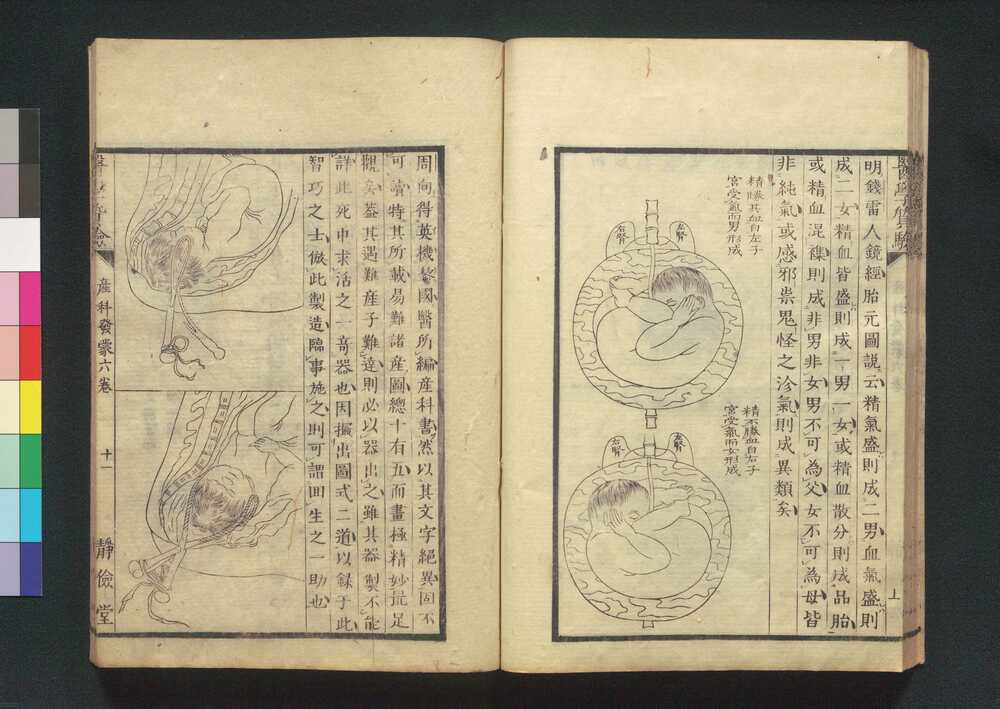 明錢雷人鏡經胎元圖説云精氣盛則成二男血氣盛則
成二女精血皆盛則成一男一女或精血散分則成品胎
或精血混襍則成非男非女男不可為父女不可為母皆
非純氣或感邪祟鬼怪之沴氣則成異類矣
精勝其血自左子
宮受氣而男形成
左腎
右腎
精不勝血自右子
宮受氣而女形成
左腎
右腎
上
周向得英機黎國醫所編産科書然以其文字絕異固不
可讀特其所載易難諸産圖總十有五而畫極精妙足
觀矣葢其遇難産子難達則必以器出之雖其器製不能
詳此死中求活之一奇器也因摹出圖式二道以録于此
智巧之士倣此製造臨事施之則可謂回生之一助也
産科發蒙六卷
十一
靜儉堂